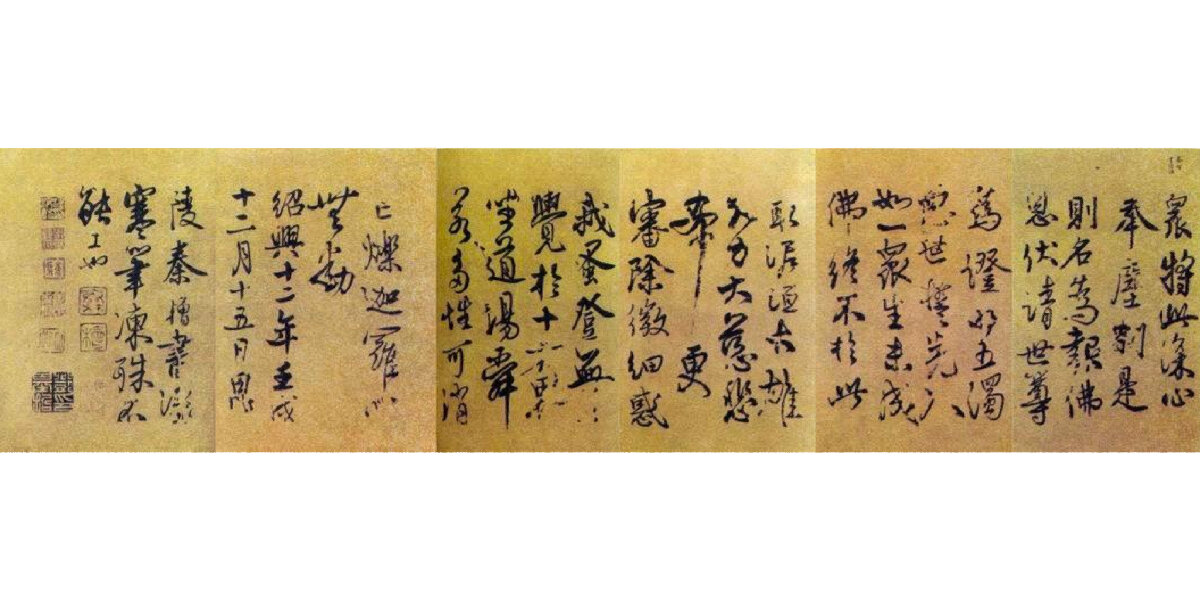 眾將此深心
奉塵剎是
則名為報佛
恩伏請世尊
為證明五濁
惡世誓先入
如一眾生未成
佛終不於此
取泥洹大雄
大力大慈悲
希更
審除微細惑
我蚤登無上
覺於十方界
坐道場舜
若多性可消
亡爍迦羅心
無動
紹興十二年壬戌
十二月十五日
陵秦檜書
寒筆凍殊不
能工也